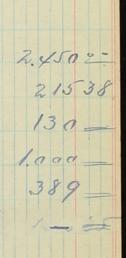 2.450 =
215 38
130 =
1.000 =
389 =